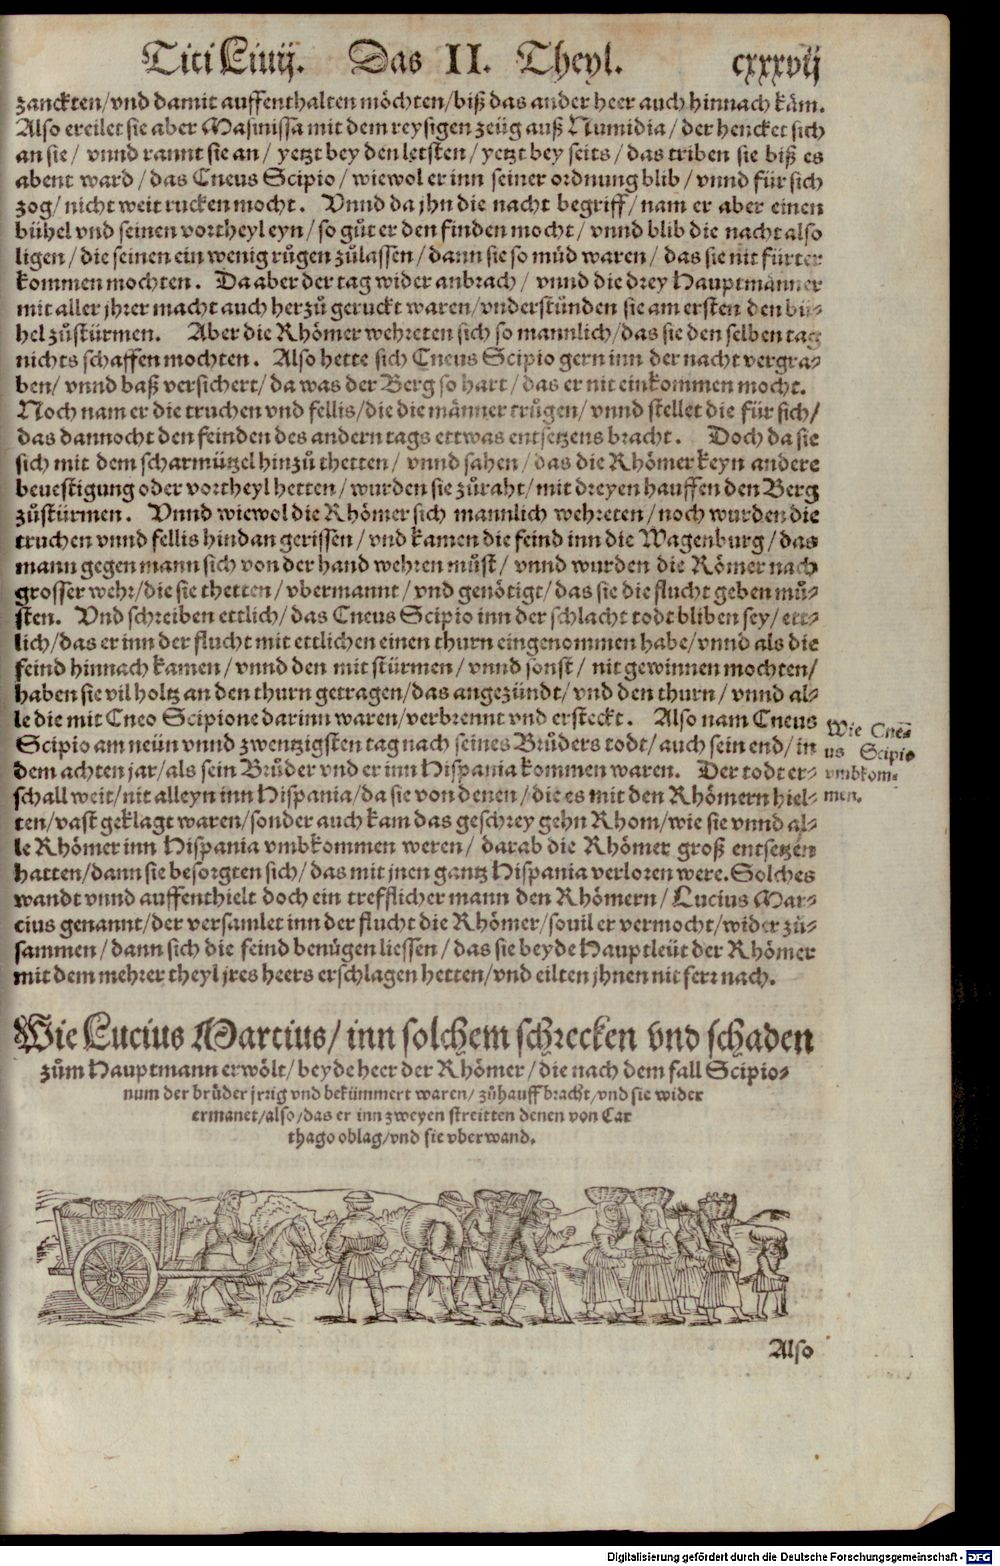 Titi Liuij. Das II. Theyl. cxxxvij
zanckten/vnd damit auffenthalten möchten/biß das ander heer auch hinnach käm.
Also ereilet sie aber Masinissa mit dem reysigen zeüg auß Numidia/ der hencket sich
an sie/ vnnd rannt sie an/ yetzt bey den letsten/ yetzt bey seits/ das triben sie biß es
abent ward/das Cneus Scipio/wiewol er inn seiner ordnung blib/vnnd für sich
zog/nicht weit rucken mocht. Vnnd da jhn die nacht begriff/nam er aber einen
bühel vnd seinen vortheyl eyn/so gůt er den finden mocht/vnnd blib die nacht also
ligen/die seinen ein wenig růgen zůlassen/dann sie so müd waren/das sie nit fürter
kommen mochten. Da aber der tag wider anbrach/vnnd die drey Hauptmänner
mit aller jhrer macht auch herzů geruckt waren/vnderstůnden sie am ersten den bü-
hel zůstürmen. Aber die Rhömer wehreten sich so mannlich/das sie den selben tag
nichts schaffen mochten. Also hette sich Cneus Scipio gern inn der nacht vergra-
ben/ vnnd baß versichert/da was der Berg so hart/das er nit einkommen mocht.
Noch nam er die truchen vnd fellis/die die männer trůgen/vnnd stellet die für sich/
das dannocht den feinden des andern tags ettwas entsetzens bracht. Doch da sie
sich mit dem scharmützel hinzů thetten/ vnnd sahen/das die Rhömer keyn andere
beuestigung oder vortheyl hetten/wurden sie zůraht/mit dreyen hauffen den Berg
zůstürmen. Vnnd wiewol die Rhömer sich mannlich wehreten/noch wurden die
truchen vnnd fellis hindan gerissen/vnd kamen die feind inn die Wagenburg/das
mann gegen mann sich von der hand wehren můst/vnnd wurden die Römer nach
grosser wehr/die sie thetten/vbermannt/vnd genötigt/das sie die flucht geben mů-
sten. Vnd schreiben ettlich/das Cneus Scipio inn der schlacht todt bliben sey/ett-
lich/das er inn der flucht mit ettlichen einen thurn eingenommen habe/vnnd als die
feind hinnach kamen/vnnd den mit stürmen/vnnd sonst/nit gewinnen mochten/
haben sie vil holtz an den thurn getragen/das angezündt/vnd den thurn/vnnd al-
le die mit Cneo Scipione darinn waren/verbrennt vnd ersteckt. Also nam Cneus
Scipio am neün vnnd zwentzigsten tag nach seines Brůders todt/auch sein end/in
dem achten jar/als sein Brůder vnd er inn Hispania kommen waren. Der todt er-
schall weit/nit alleyn inn Hispania/da sie von denen/die es mit den Rhömern hiel-
ten/vast geklagt waren/sonder auch kam das geschrey gehn Rhom/wie sie vnnd al-
le Rhömer inn Hispania vmbkommen weren/ darab die Rhömer groß entsetzen
hatten/dann sie besorgten sich/das mit jnen gantz Hispania verloren were. Solches
wandt vnnd auffenthielt doch ein trefflicher mann den Rhömern/Lucius Mar-
cius genannt/der versamlet inn der flucht die Rhömer/souil er vermocht/wider zů-
sammen/dann sich die feind benůgen liessen/das sie beyde Hauptleüt der Rhömer
mit dem mehrer theyl jres heers erschlagen hetten/vnd eilten jhnen nit ferr nach.
Wie Cne-
us Scipio
vmbkom-
men.
Wie Lucius Martius/ inn solchem schrecken vnd schaden
zům Hauptmann erwölt/beyde heer der Rhömer/die nach dem fall Scipio-
num der brüder jrrig vnd bekümmert waren/zůhauff bracht/vnd sie wider
ermanet/also/das er inn zweyen streitten denen von Car
thago oblag/vnd sie vberwand.
Also
Digitalisierung gefördert durch die Deutsche Forschungsgemeinschaft - DFG